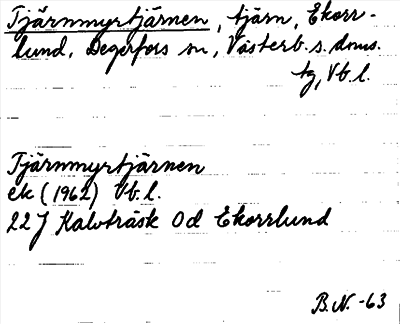 Tjärnmyrtjärnen, tjärn, Ekorr-
lund, Degerfors sn, Västerb. s. dmus.
tg, Vb. l.
Tjärnmyrtjärnen
ek (1962) Vb. l.
22 J Kalvträsk 0d Ekorrlund
B.N. -63